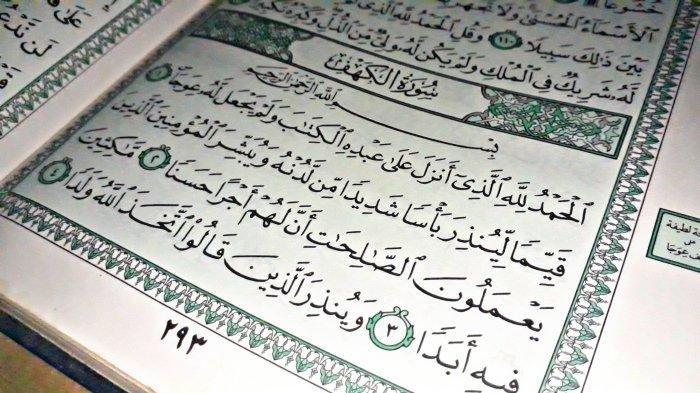 ٱلۡأَسۡمَآءُ ٱلۡحُسۡنَىٰ وَلَا تَجۡهَرۡ
بَيۡنَ ذَٰلِكَ سَبِيلًا ١١٠ وَقُلِ ٱلۡحَمۡدُ لِلَّهِ ٱلَّذِي
لَّهُۥ شَرِيكٌ فِي ٱلۡمُلۡكِ وَلَمۡ يَكُن لَّهُۥ وَلِيٌّ مِّنَ ٱلذُّلِّ وَكَبِّرۡهُ
سُورَةُ الكَهۡفِ
بِسۡمِ ٱللَّهِ ٱلرَّحۡمَٰنِ ٱلرَّحِيمِ
ٱلۡحَمۡدُ لِلَّهِ ٱلَّذِيٓ أَنزَلَ عَلَىٰ عَبۡدِهِ ٱلۡكِتَٰبَ وَلَمۡ يَجۡعَل لَّهُۥ عِوَجَا ١
قَيِّمٗا لِّيُنذِرَ بَأۡسٗا شَدِيدٗا مِّن لَّدُنۡهُ وَيُبَشِّرَ ٱلۡمُؤۡمِنِينَ ٱلَّذِينَ
يَعۡمَلُونَ ٱلصَّٰلِحَٰتِ أَنَّ لَهُمۡ أَجۡرًا حَسَنٗا ٢ مَّٰكِثِينَ
فِيهِ أَبَدٗا ٣ وَيُنذِرَ ٱلَّذِينَ قَالُواْ ٱتَّخَذَ ٱللَّهُ وَلَدٗا ٤
٢٩٣